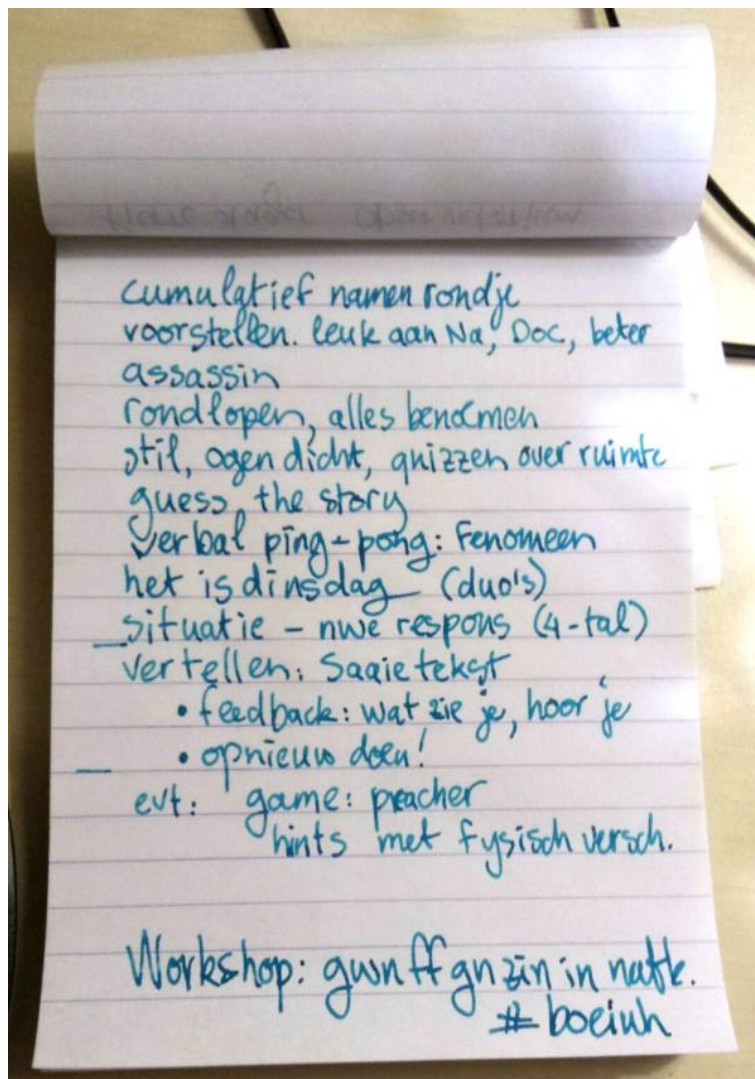 cumulatief namen rondje
voorstellen. leuk aan Na, Doc, beter
assassin
rondlopen, alles benoemen
stil, ogen dicht, quizzen over ruimte
guess the story
verbal ping-pong: Fenomeen
het is dinsdag (duo's)
situatie – nwe respons (4-tal)
vertellen: Saaie tekst
• feedback: wat zie je, hoor je
• opnieuw doen!
evt: game: preacher
hints met fysisch versch.
Workshop: gwn ff gn zin in natk.
# boeiuh